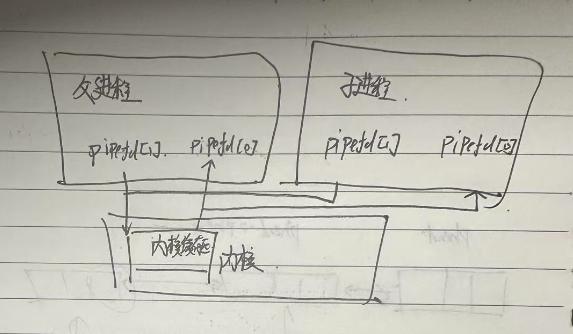 父进程
子进程.
pipefd[1]. pipefd[0]
pipefd[1] pipefd[0]
内核缓冲区
内核